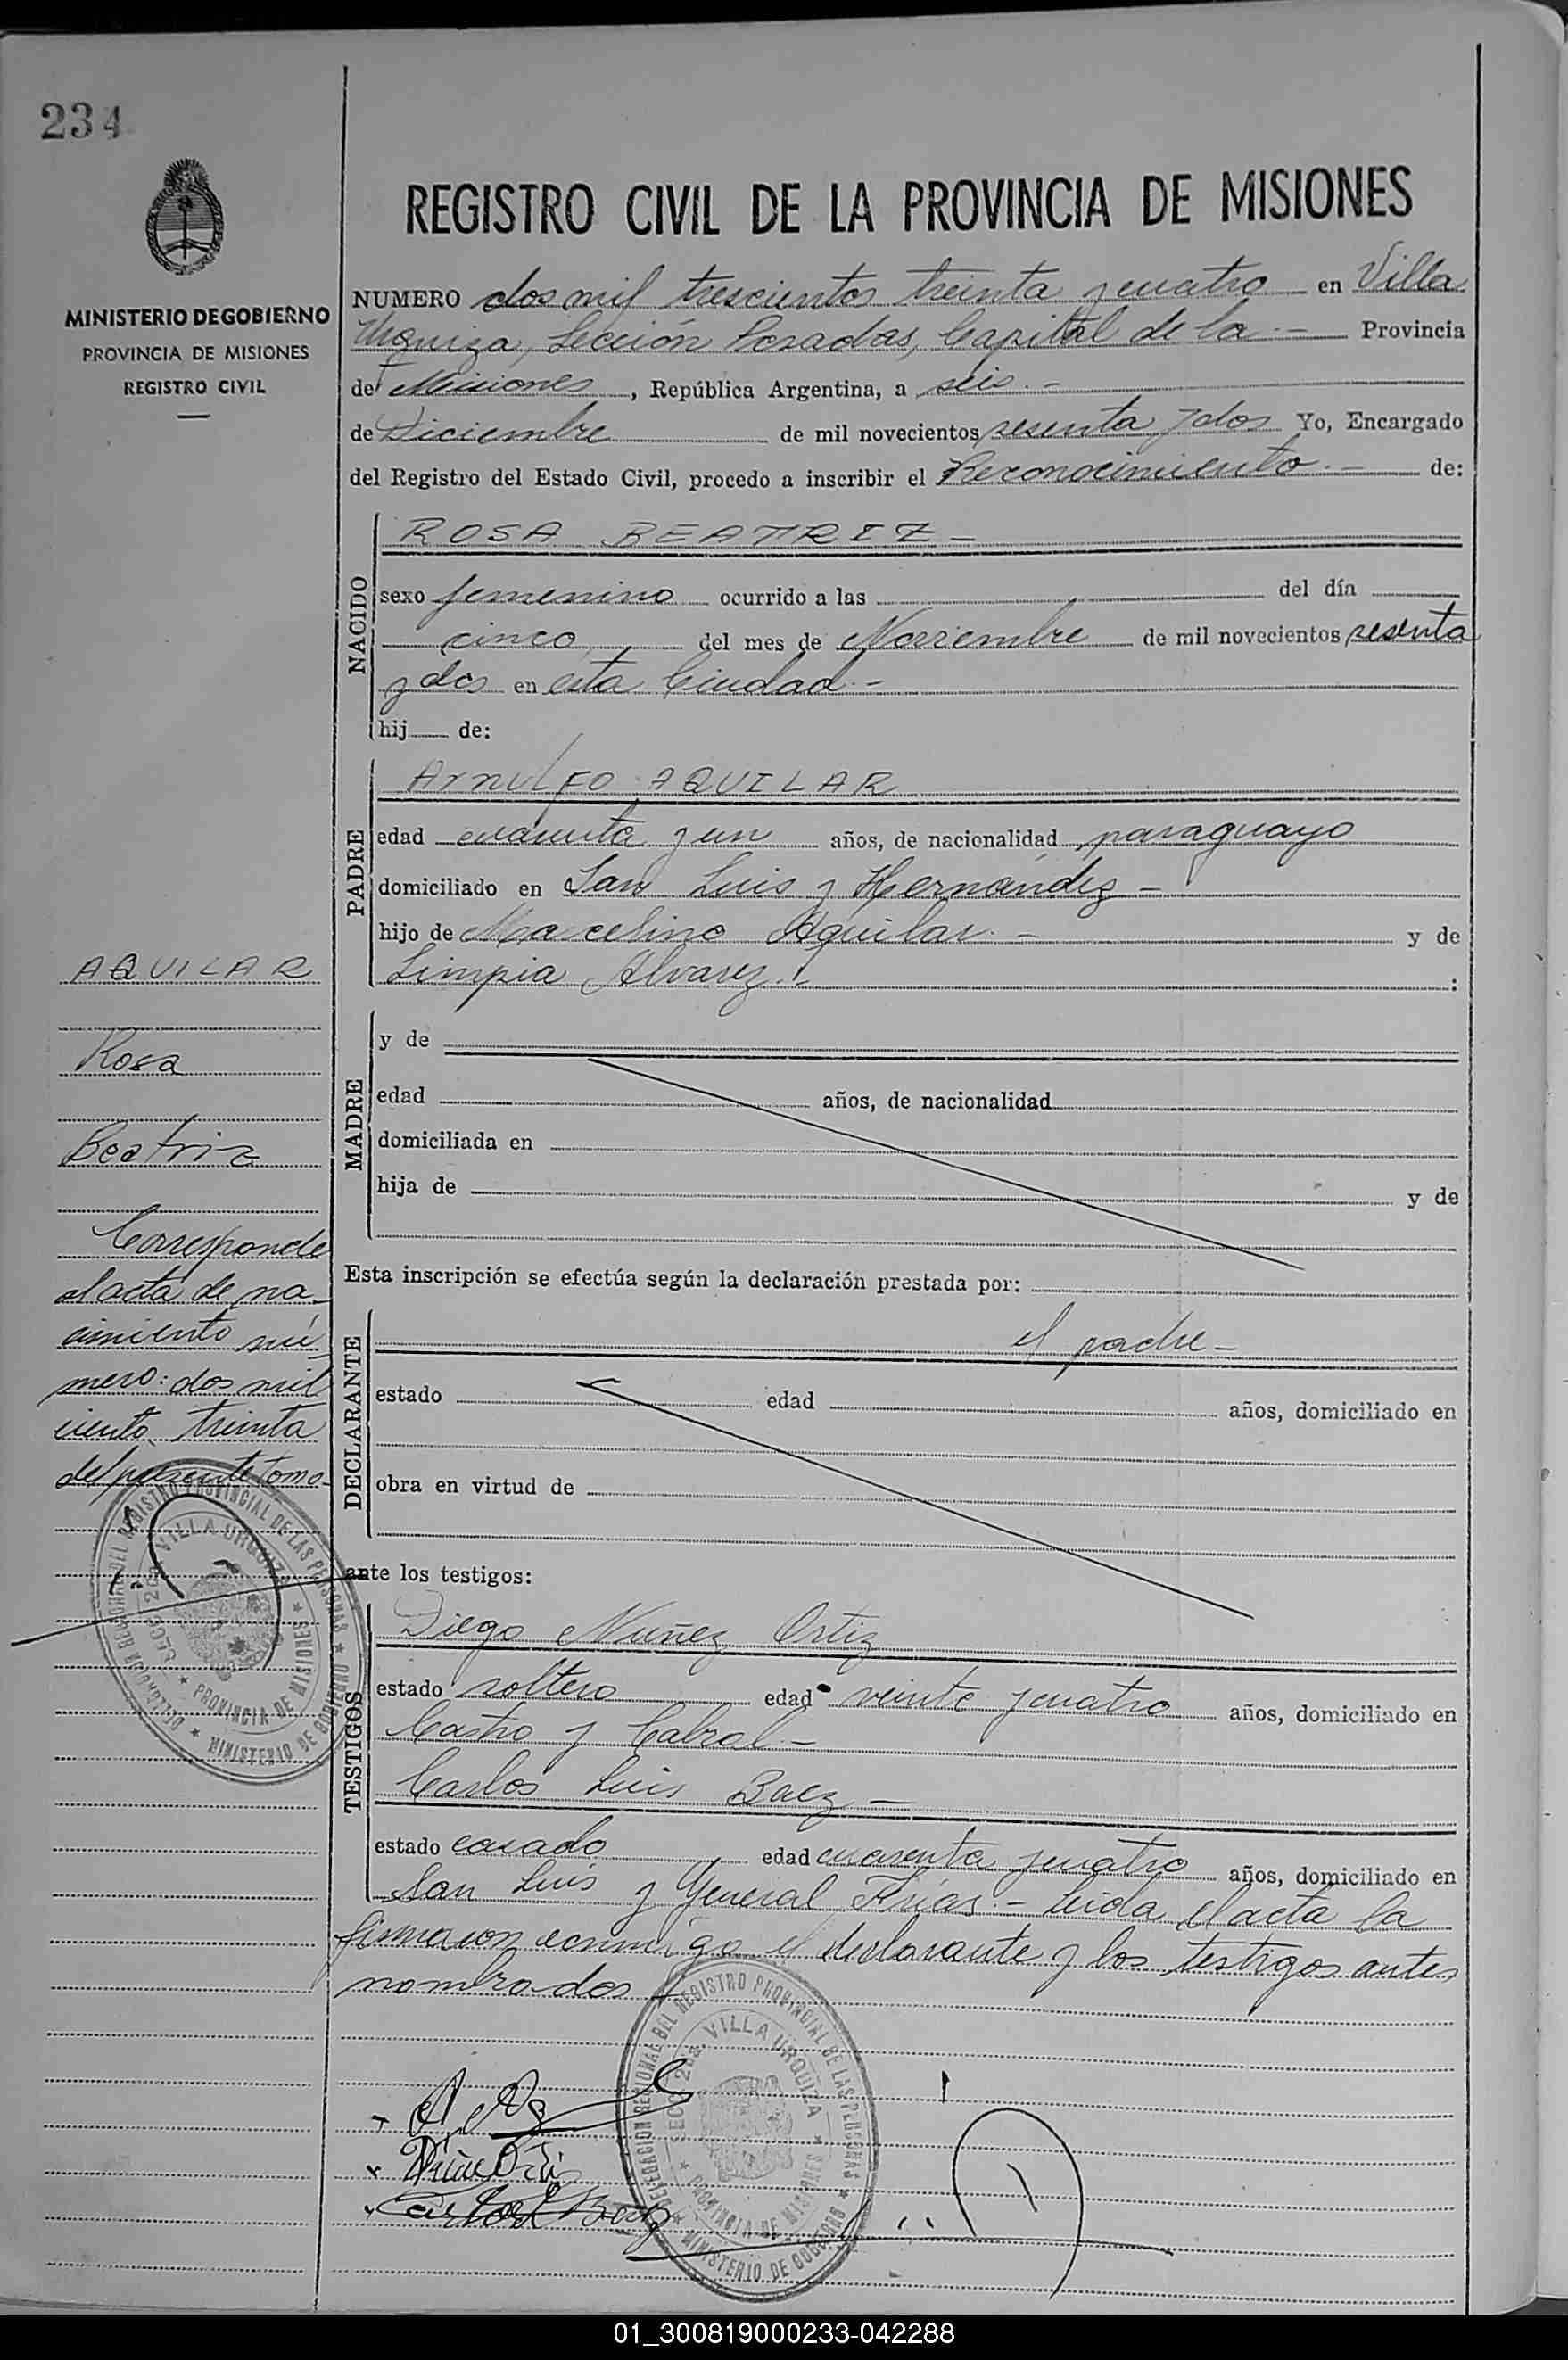 234
MINISTERIO DE GOBIERNO
PROVINCIA DE MISIONES
REGISTRO CIVIL
REGISTRO CIVIL DE LA PROVINCIA DE MISIONES
NUMERO dos mil trescientos treinta y cuatro en Villa
Urquiza, Sección Posadas, Capital de la - Provincia
de Misiones, República Argentina, a seis.-
de Diciembre de mil novecientos sesenta y dos Yo, Encargado
del Registro del Estado Civil, procedo a inscribir el Reconocimiento.- de:
NACIDO
ROSA BEATRIZ -
sexo femenino ocurrido a las del día
cinco del mes de Noviembre de mil novecientos sesenta
y dos en esta Ciudad.-
hij de:
PADRE
Arnulfo AQUILAR
edad cuarenta y un años, de nacionalidad paraguayo
domiciliado en San Luis y Hernández -
hijo de Marcelino Aguilar.- y de
Limpia Alvarez.-:
MADRE
y de
edad años, de nacionalidad
domiciliada en
hija de y de
Esta inscripción se efectúa según la declaración prestada por:
DECLARANTE
el padre -
estado edad años, domiciliado en
obra en virtud de
ante los testigos:
TESTIGOS
Diego Nuñez Ortiz
estado soltero edad veinte y cuatro años, domiciliado en
Castro y Cabral -
Carlos Luis Baez -
estado casado edad cuarenta y cuatro años, domiciliado en
San Luis y General Frías.- Leída el acta la
firmaron conmigo el declarante y los testigos antes
nombrados
AQUILAR
Rosa
Beatriz
Corresponde
al acta de na-
cimiento nú-
mero: dos mil
ciento treinta
del presente Tomo-
DELEGACION REGIONAL DEL REGISTRO PROVINCIAL DE LAS PERSONAS
SECC. 2da. VILLA URQUIZA
PROVINCIA DE MISIONES
MINISTERIO DE GOBIERNO
DELEGACION REGIONAL DEL REGISTRO PROVINCIAL DE LAS PERSONAS
SECC. 2da. VILLA URQUIZA
PROVINCIA DE MISIONES
MINISTERIO DE GOBIERNO
Carlos L Baez
01_300819000233-042288